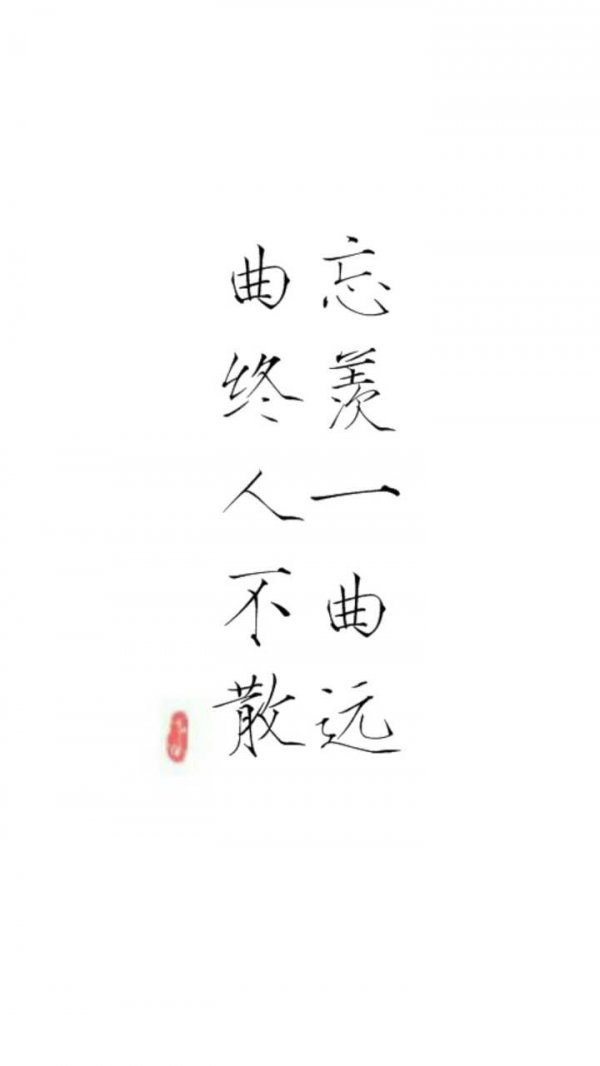 忘羨一曲远
曲终人不散